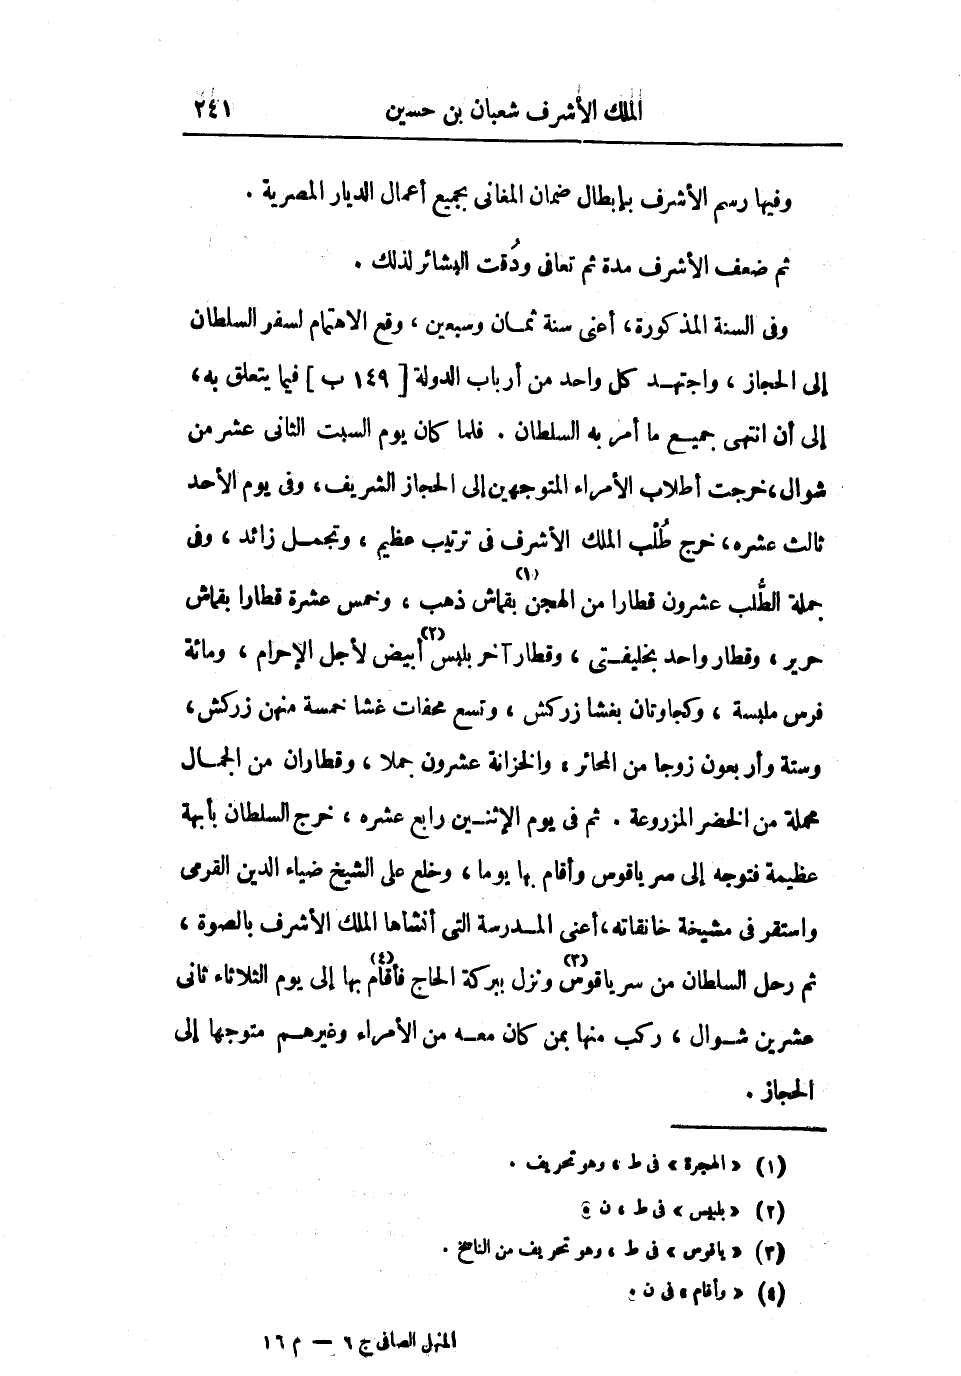 الملك الأشرف شعبان بن حسين ٢٤١
وفيها رسم الأشرف بإبطال ضمان المغانى بجميع أعمال الديار المصرية .
ثم ضعف الأشرف مدة ثم تعافى ودُقت البشائر لذلك .
وفى السنة المذكورة، أعنى سنة ثمـان وسبعين ، وقع الاهتمام لسفر السلطان
إلى الحجاز ، واجتهـد كل واحد من أرباب الدولة [ ١٤٩ ب ] فيما يتعلق به ،
إلى أن انتهى جميـع ما أمر به السلطان . فلما كان يوم السبت الثانى عشر من
شوال، خرجت أطلاب الأمراء المتوجهين إلى الحجاز الشريف ، وفى يوم الأحد
ثالث عشره ، خرج طُلْب الملك الأشرف فى ترتيب عظيم ، وتجمـل زائد ، وفى
جملة الطُّلب عشرون قطارا من الهجن (١) بقماش ذهب ، وخمس عشرة قطارا بقماش
حرير ، وقطار واحد بخليفـتى ، وقطار آخر بلبس (٢) أبيض لأجل الإحرام ، ومائة
فرس ملبسة ، وكجاوتان بغشا زركش ، وتسع محفات غشا خمسة منهن زركش ،
وستة وأربعون زوجا من المحائر ، والخزانة عشرون جملا ، وقطاران من الجمـال
محملة من الخضر المزروعة . ثم فى يوم الإثنـين رابع عشره ، خرج السلطان بأبهة
عظيمة فتوجه إلى سرياقوس وأقام بها يوما ، وخلع على الشيخ ضياء الدين القرمى
واستقر فى مشيخة خانقاته، أعنى المـدرسة التى أنشأها الملك الأشرف بالصوة ،
ثم رحل السلطان من سرياقوس (٣) ونزل ببركة الحاج فأقام (٤) بها إلى يوم الثلاثاء ثانى
عشرين شـوال ، ركب منها بمن كان معـه من الأمراء وغيرهـم متوجها إلى
الحجاز .
(١) « الهجرة » فى ط ، وهو تحريف .
(٢) « بلبيس » فى ط ، ن .
(٣) « ياقوس » فى ط ، وهو تحريف من الناسخ .
(٤) « وأقام » فى ن .
المنهل الصافى ج ٦ — م ١٦